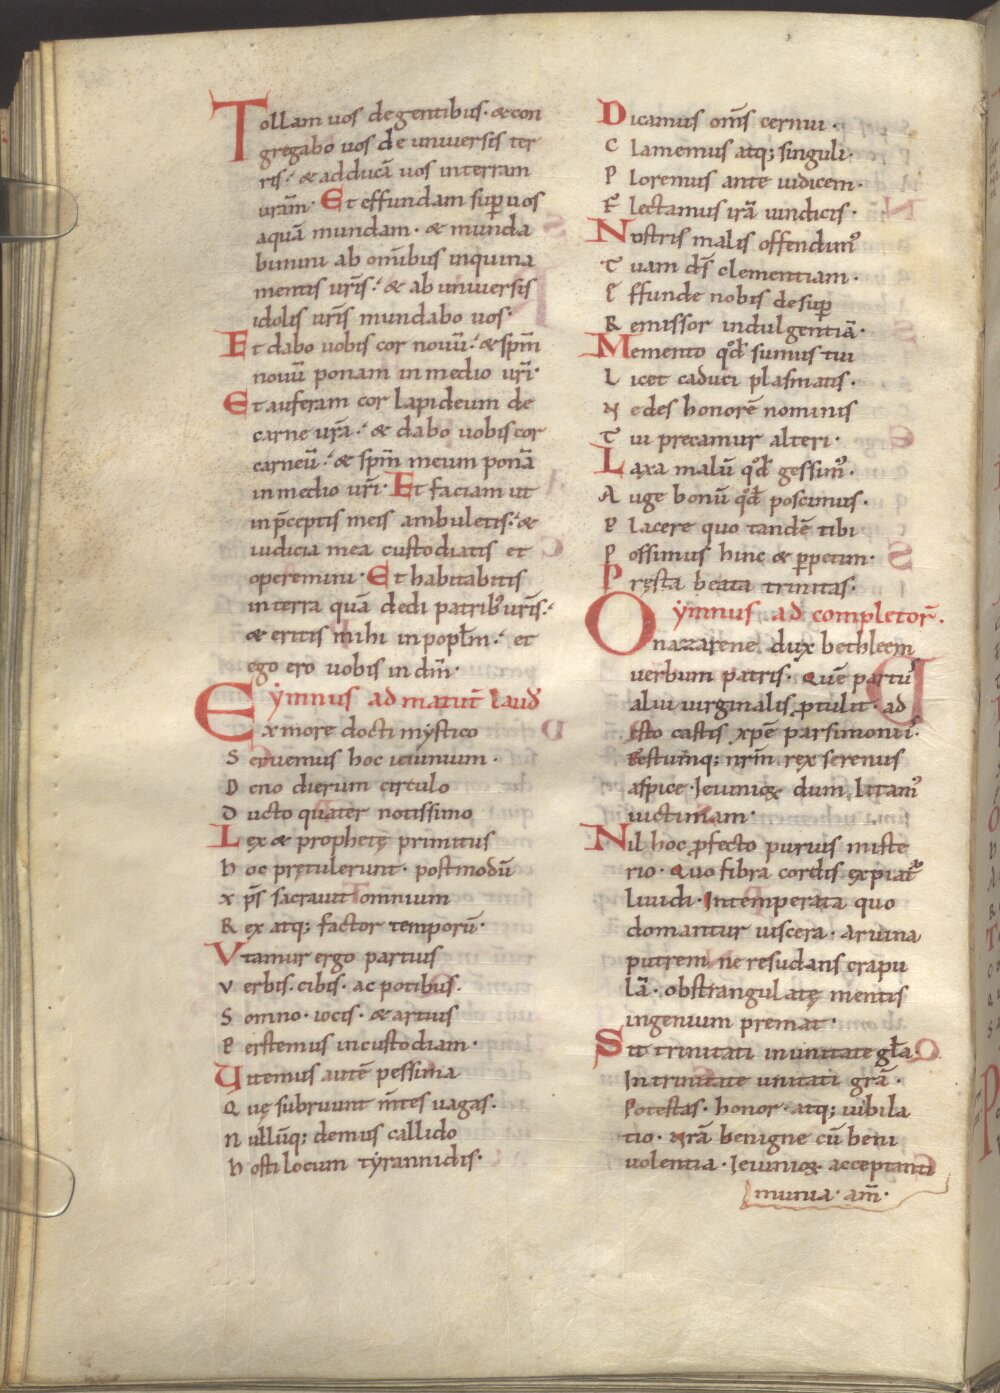 Tollam uos de gentibus· & con
gregabo uos de uniuersis ter
ris:' & adducā uos in terram
urām· Et effundam sup̱ uos
aquā mundam· & munda
bimini ab om̄ibus inquina
mentis ur̄is:' & ab uniuersis
idolis ur̄is mundabo uos·
Et dabo uobis cor nouū:' & sp̄m
nouū ponam in medio ur̄i·
Et auferam cor lapideum de
carne ur̄a:' & dabo uobis cor
carneū:' & sp̄m meum ponā
in medio ur̄i· Et faciam ut
in p̄ceptis meis ambuletis:' &
iudicia mea custodiatis et
operemini· Et habitabitis
in terra quā dedi patrib' ur̄is:'
& eritis mihi in popl̄m· et
ego ero uobis in dm̄·
ẏmnus ad matut̄ laud̄
Ex more docti mẏstico
Seruemus hoc ieiunium·
Deno dierum circulo
Ducto quater notissimo
Lex & prophetę primitus
hoc prętulerunt· postmodū
xp̄s sacrauit omnium
Rex atq; factor temporū·
Vtamur ergo partius
Verbis· cibis· ac potibus·
Somno· iocis· & artius
Perstemus in custodiam·
Uitemus autē pessima
Quę subruunt m̄tes uagas·
Nullūq; demus callido
hosti locum tẏrannidis·
Dicamus om̄s cernui·
Clamemus atq; singuli·
Ploremus ante iudicem·
Flectamus irā uindicis·
Nostris malis offendim'
Tuam ds̄ clementiam·
Effunde nobis desup̱
Remissor indulgentiā·
Memento qd̄ sumus tui
Licet caduci plasmatis·
Ne des honorē nominis
Tui precamur alteri·
Laxa malū qd̄ gessim'·
Auge bonū qd̄ poscimus·
Placere quo tandē tibi
Possimus hinc & p̱petim·
Pręsta beata trinitas·
ẏmnus ad completor̄·
O nazarene dux bethleem
uerbum patris· Quē partus
alui uirginalis ꝓtulit· ad
esto castis xp̄e parsimoniis·
Festumq; nr̄m rex serenus
aspice· Ieiunioꝝ dum litam'
uictimam·
Nil hoc ꝓfecto purius miste
rio· Quo fibra cordis expiat᷑
liuidi· Intemperata quo
domantur uiscera· Aruina
putrem ne resudans crapu
lā· obstrangulatę mentis
ingenium premat·
Sit trinitati in unitate gl̄a
In trinitate unitati grā·
Potestas· honor· atq; iubila
tio· Nr̄ā benigne cū beni
uolentia· Ieiunioꝝ acceptanti
munia· am̄·